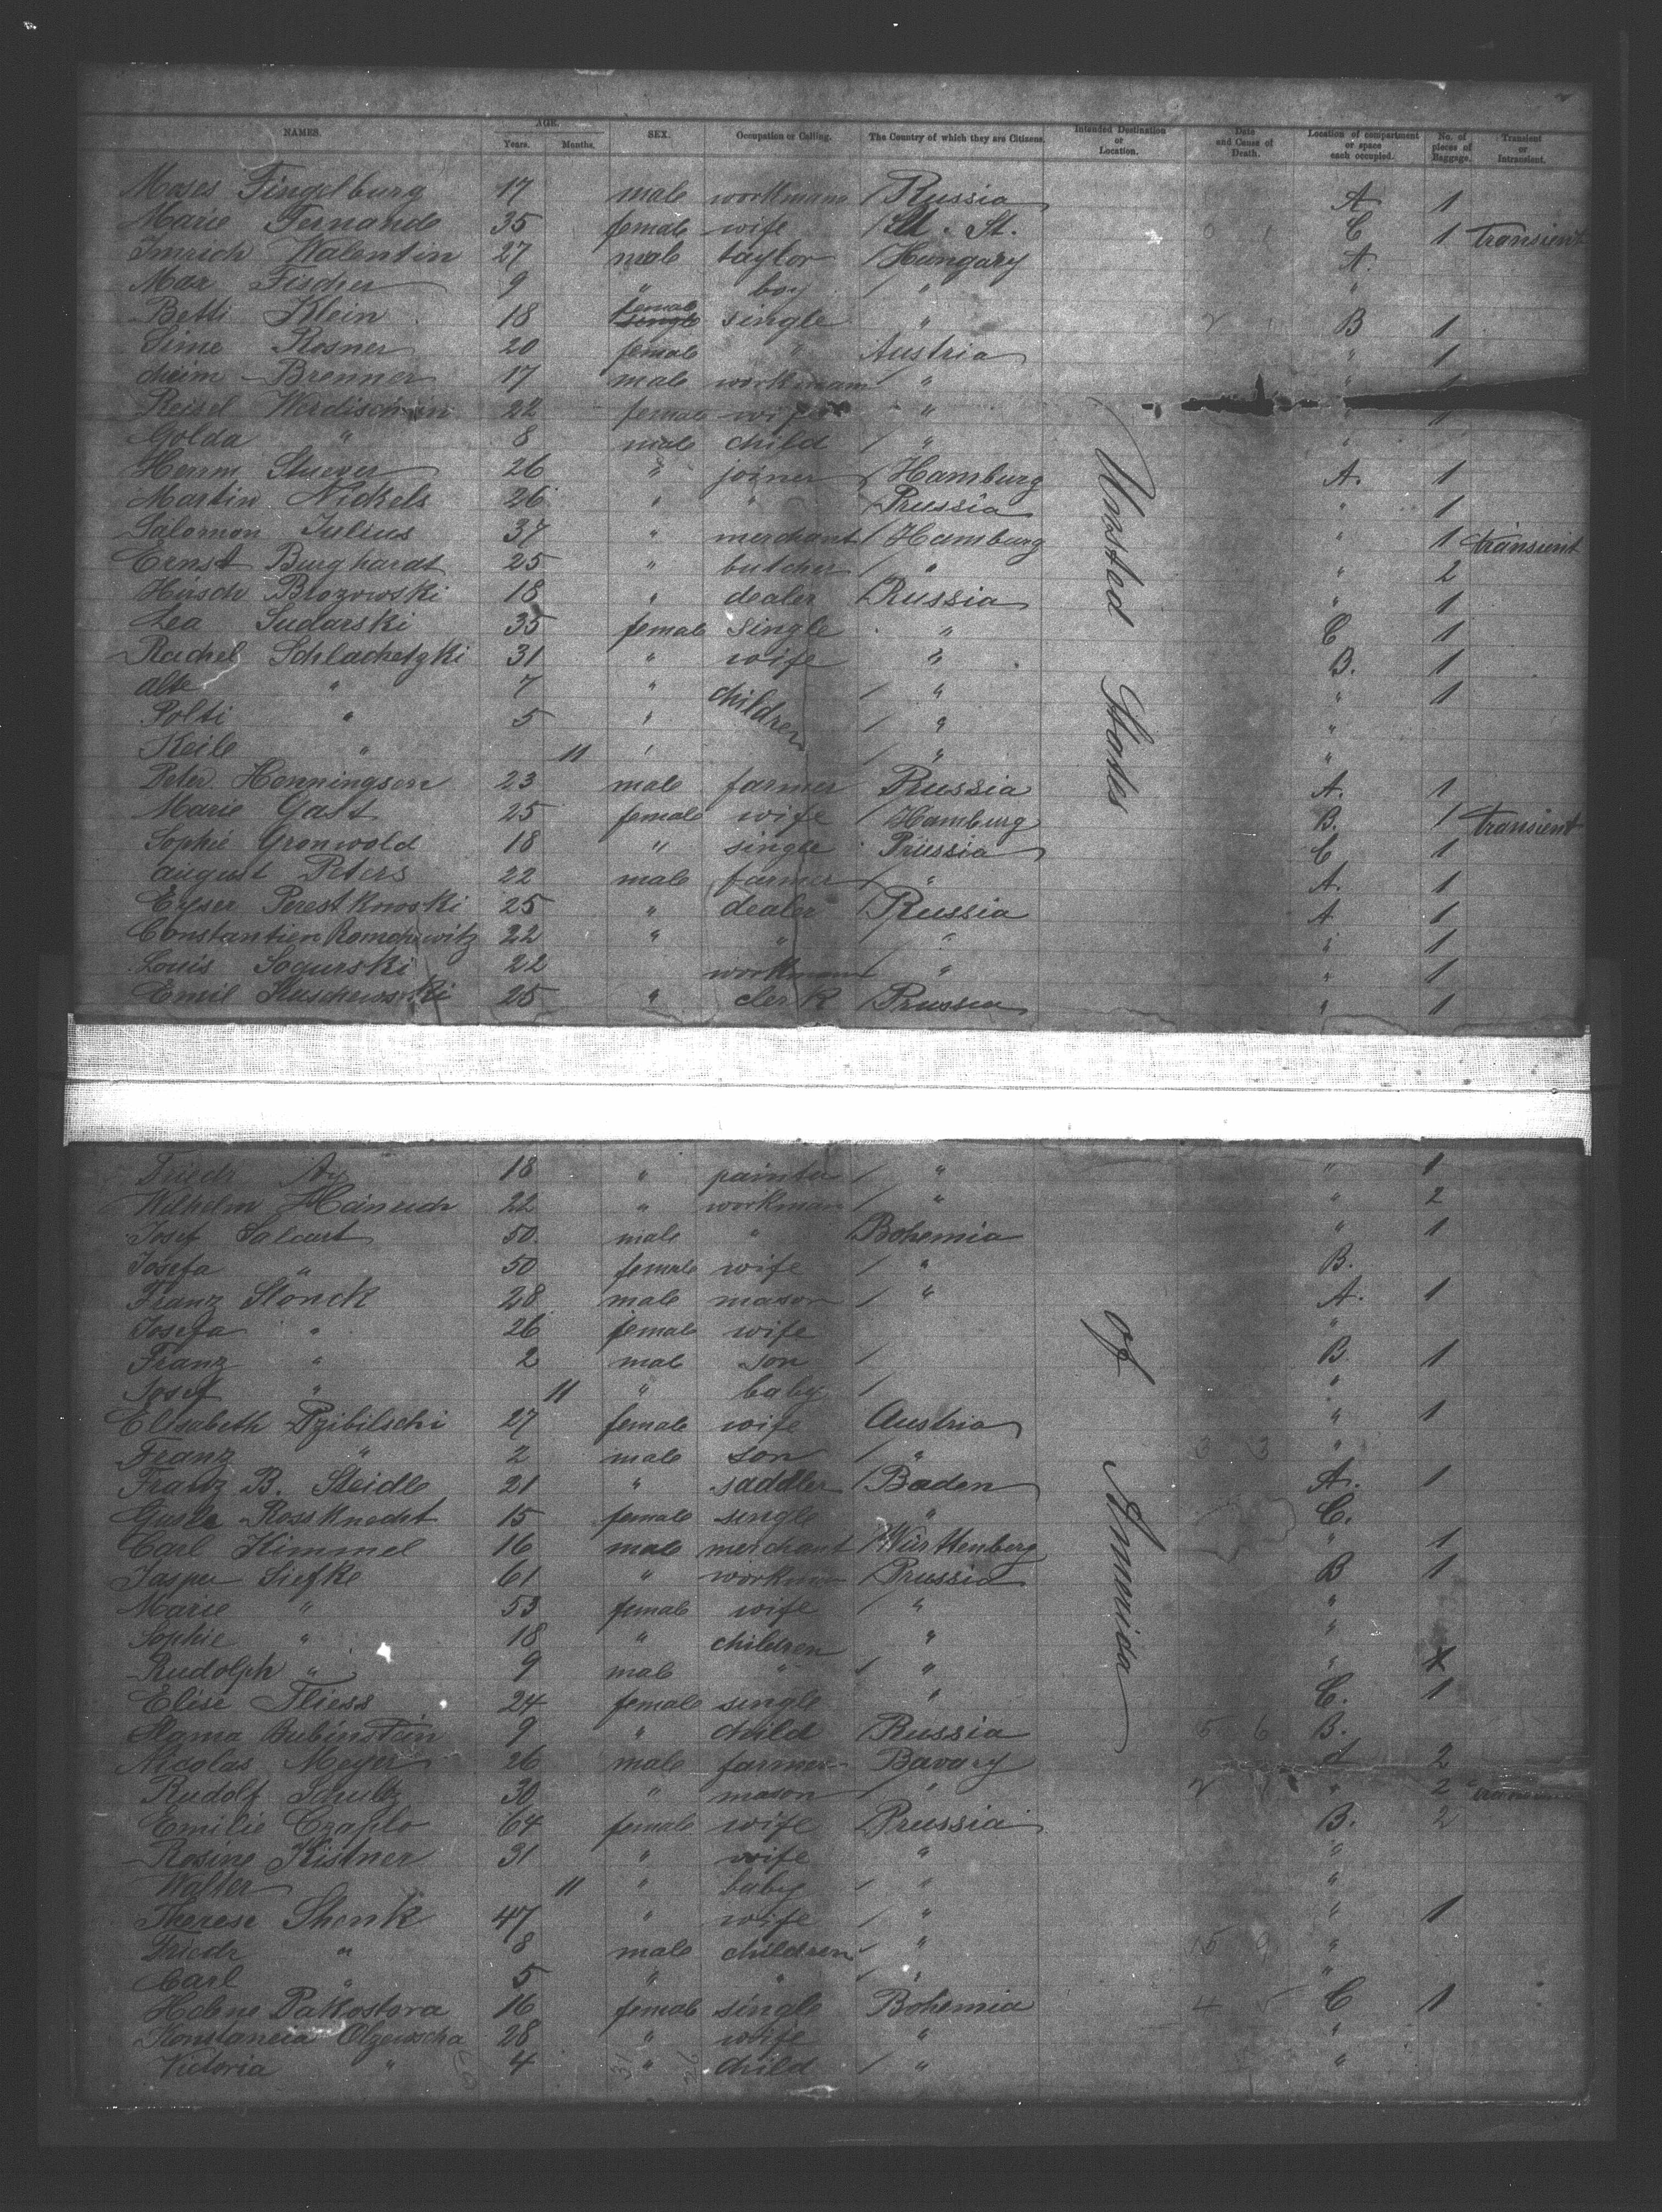 NAMES. AGE. Years. Months. SEX. Occupation or Calling. The Country of which they are Citizens. Intended Destination or Location. Date and Cause of Death. Location of compartment or space each occupied. No. of pieces of Baggage. Transient or Intransient.
Moses Fingelburg 17 male workmann / Russia A 1
Marie Fernande 35 female wife / St. C 1 transient
Imrich Walentin 27 male taylor / Hungary A.
Max Fischer 9 " boy / " "
Betti Klein 18 female single " B 1
Sime Rosner 20 female " Austria " 1
cheim Brenner 17 male workmann / " " 1
Reisel 22 female wife " "
Golda " 8 male child / " "
Herrm Stuever 26 " joiner / Hamburg A. 1
Martin Nickels 26 " " Prussia " 1
Salomon Julius 37 " merchant / Hamburg " 1 transient
Ernst Burghardt 25 " butcher / " " 2
Hirsch Brozowski 18 " dealer / Russia " 1
Lea Sudarski 35 female single " C 1
Rachel Schlachetzki 31 " wife " B. 1
Alte " 7 " children / " " 1
Polti " 5 " / " "
Keile " 11 " / " "
Peter Henningsen 23 male farmer Russia A. 1
Marie Gast 25 female wife / Hamburg B. 1 transient
Sophie Gronwold 18 " single Prussia C 1
August Peters 22 male farmer / " A. 1
Eyser Perestknowski 25 " dealer / Russia A 1
Constantien 22 " " / " " 1
Louis Sogurski 22 workmann / " " 1
Emil 25 " clerk / Prussia " 1
Friedr 18 " painter / " " 1
Wilhelm Heinrich 22 " workman / " " 2
Josef Salaust 50 male " Bohemia " 1
Josefa " 50 female wife / " B.
Franz Slonek 28 male mason / " A. 1
Josefa " 26 female wife "
Franz " 2 male son / B 1
Josef " 11 " baby / "
Elisabeth Pzibilschi 27 female wife Austria " 1
Franz " 2 male son / " 3 3 "
Franz B. Steidle 21 " saddler / Baden A. 1
Guste Rossknecht 15 female single " C.
Carl Kimmel 16 male merchant / Württenberg " 1
Jasper Siefke 61 " workman / Prussia B 1
Marie " 53 female wife / " "
Sophie " 18 " children " "
Rudolph " 9 male " / " "
Elise Fliess 24 female single " C. 1
Slama Rubinstein 9 " child Russia 5 6 B.
Nicolas Meyer 26 male farmer Bavary A 2
Rudolf Schultz 30 " mason / " " 2 transient
Emilie Czaplo 64 female wife Prussia B. 2
Rosine Kistner 31 " wife " "
Walter 11 " baby / " "
Therese Shenk 47 " wife / " " 1
Friedr " 8 male children / " 15 9 "
Carl " 5 " " / " "
Helene Pakostara 16 female single Bohemia 4 5 C 1
Konstancia Olzewscha 28 " wife " "
Victoria " 4 " child / " "
United States of Amerida